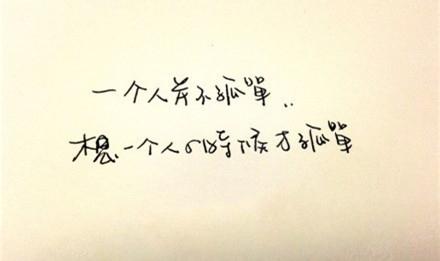 一个人并不孤單..
想一个人的時候才孤單